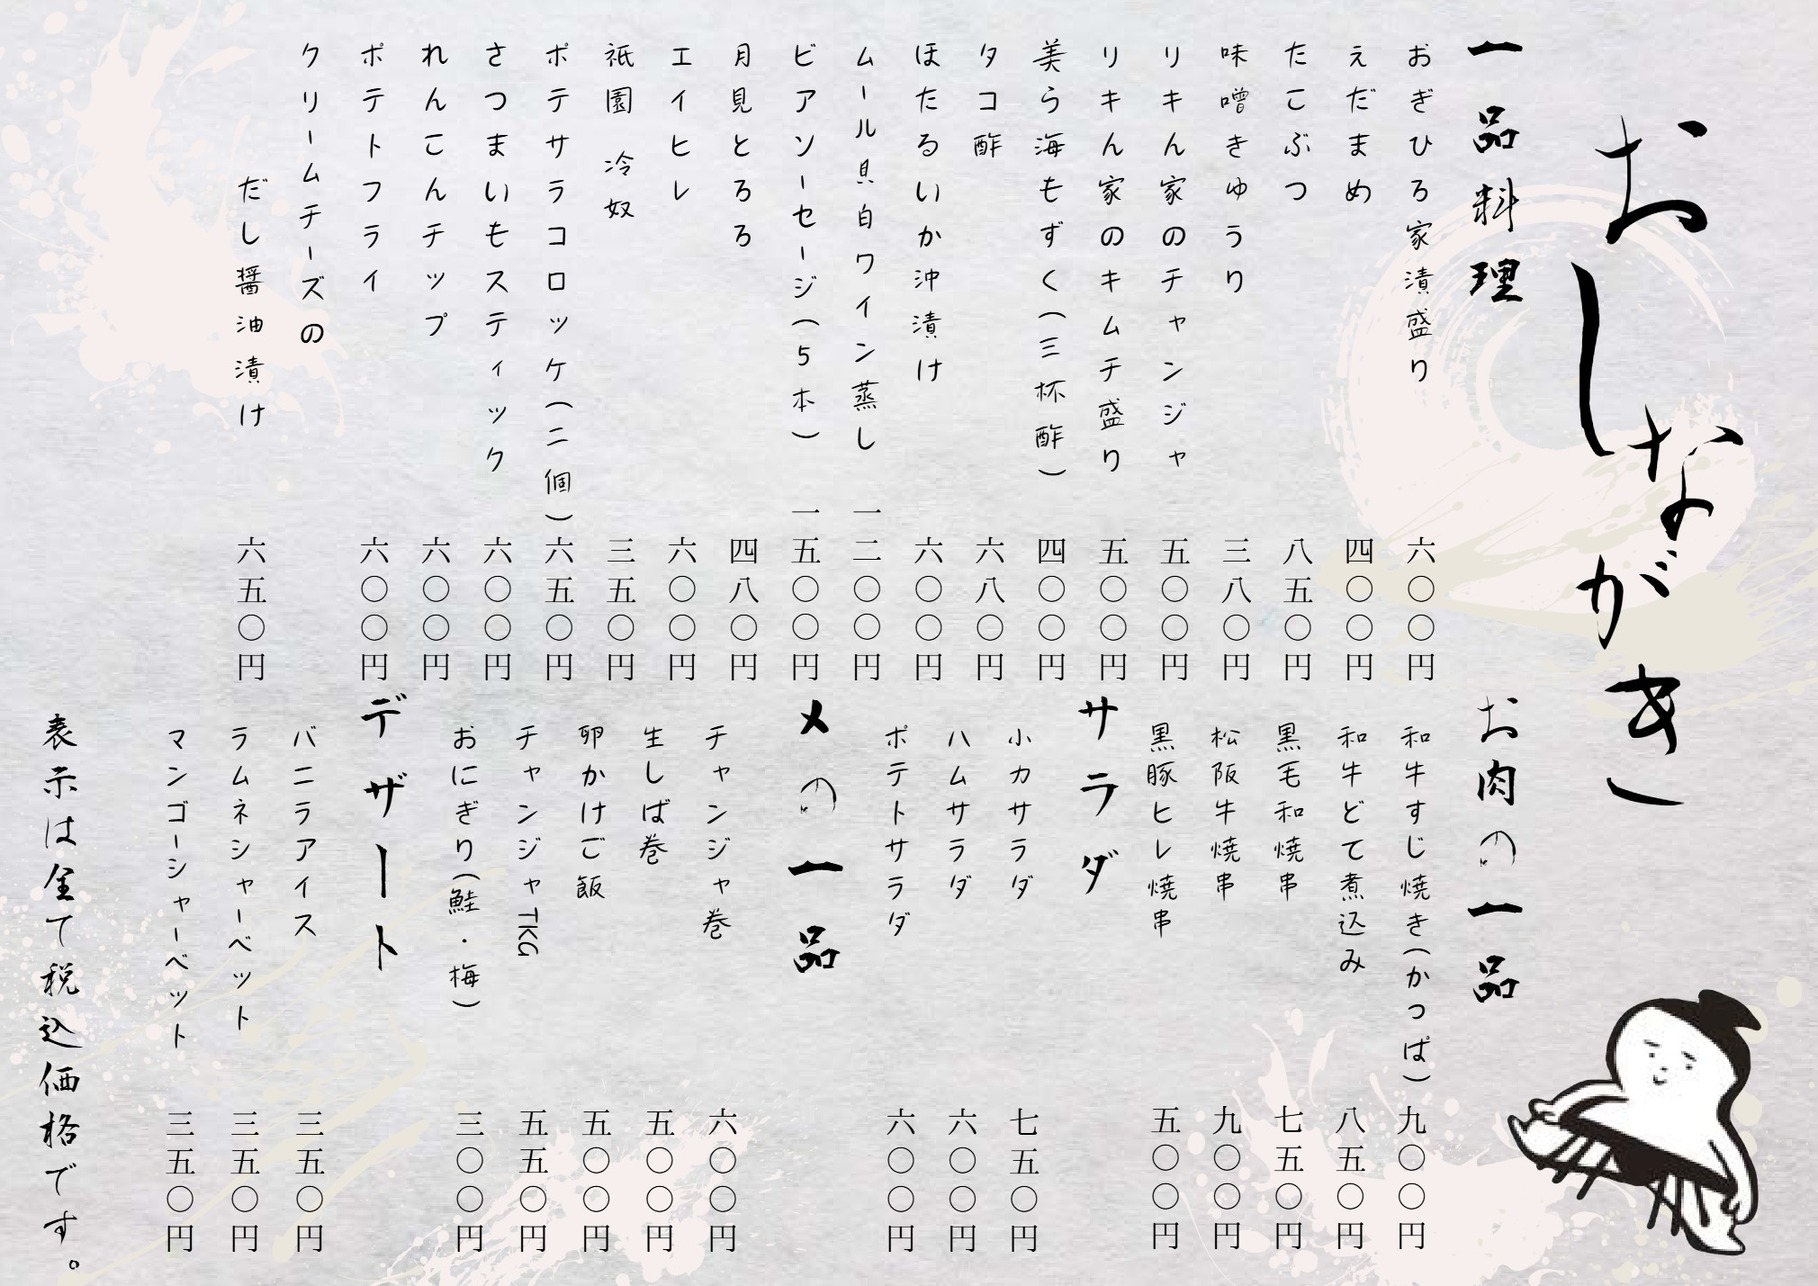 おしながき
一品料理
おぎひろ家漬盛り 六〇〇円
えだまめ 四〇〇円
たこぶつ 八五〇円
味噌きゅうり 三八〇円
リキん家のチャンジャ 五〇〇円
リキん家のキムチ盛り 五〇〇円
美ら海もずく(三杯酢) 四〇〇円
タコ酢 六八〇円
ほたるいか沖漬け 六〇〇円
ムール貝白ワイン蒸し 一二〇〇円
ビアソーセージ(5本) 一五〇〇円
月見とろろ 四八〇円
エイヒレ 六〇〇円
祇園 冷奴 三五〇円
ポテサラコロッケ(二個) 六五〇円
さつまいもスティック 六〇〇円
れんこんチップ 六〇〇円
ポテトフライ 六〇〇円
クリームチーズの
だし醤油漬け 六五〇円
お肉の一品
和牛すじ焼き(かっぱ) 九〇〇円
和牛どて煮込み 八五〇円
黒毛和焼串 七五〇円
松阪牛焼串 九〇〇円
黒豚ヒレ焼串 五〇〇円
サラダ
小カサラダ 七五〇円
ハムサラダ 六〇〇円
ポテトサラダ 六〇〇円
〆の一品
チャンジャ巻 六〇〇円
生しば巻 五〇〇円
卵かけご飯 五〇〇円
チャンジャTKG 五五〇円
おにぎり(鮭・梅) 三〇〇円
デザート
バニラアイス 三五〇円
ラムネシャーベット 三五〇円
マンゴーシャーベット 三五〇円
表示は全て税込価格です。